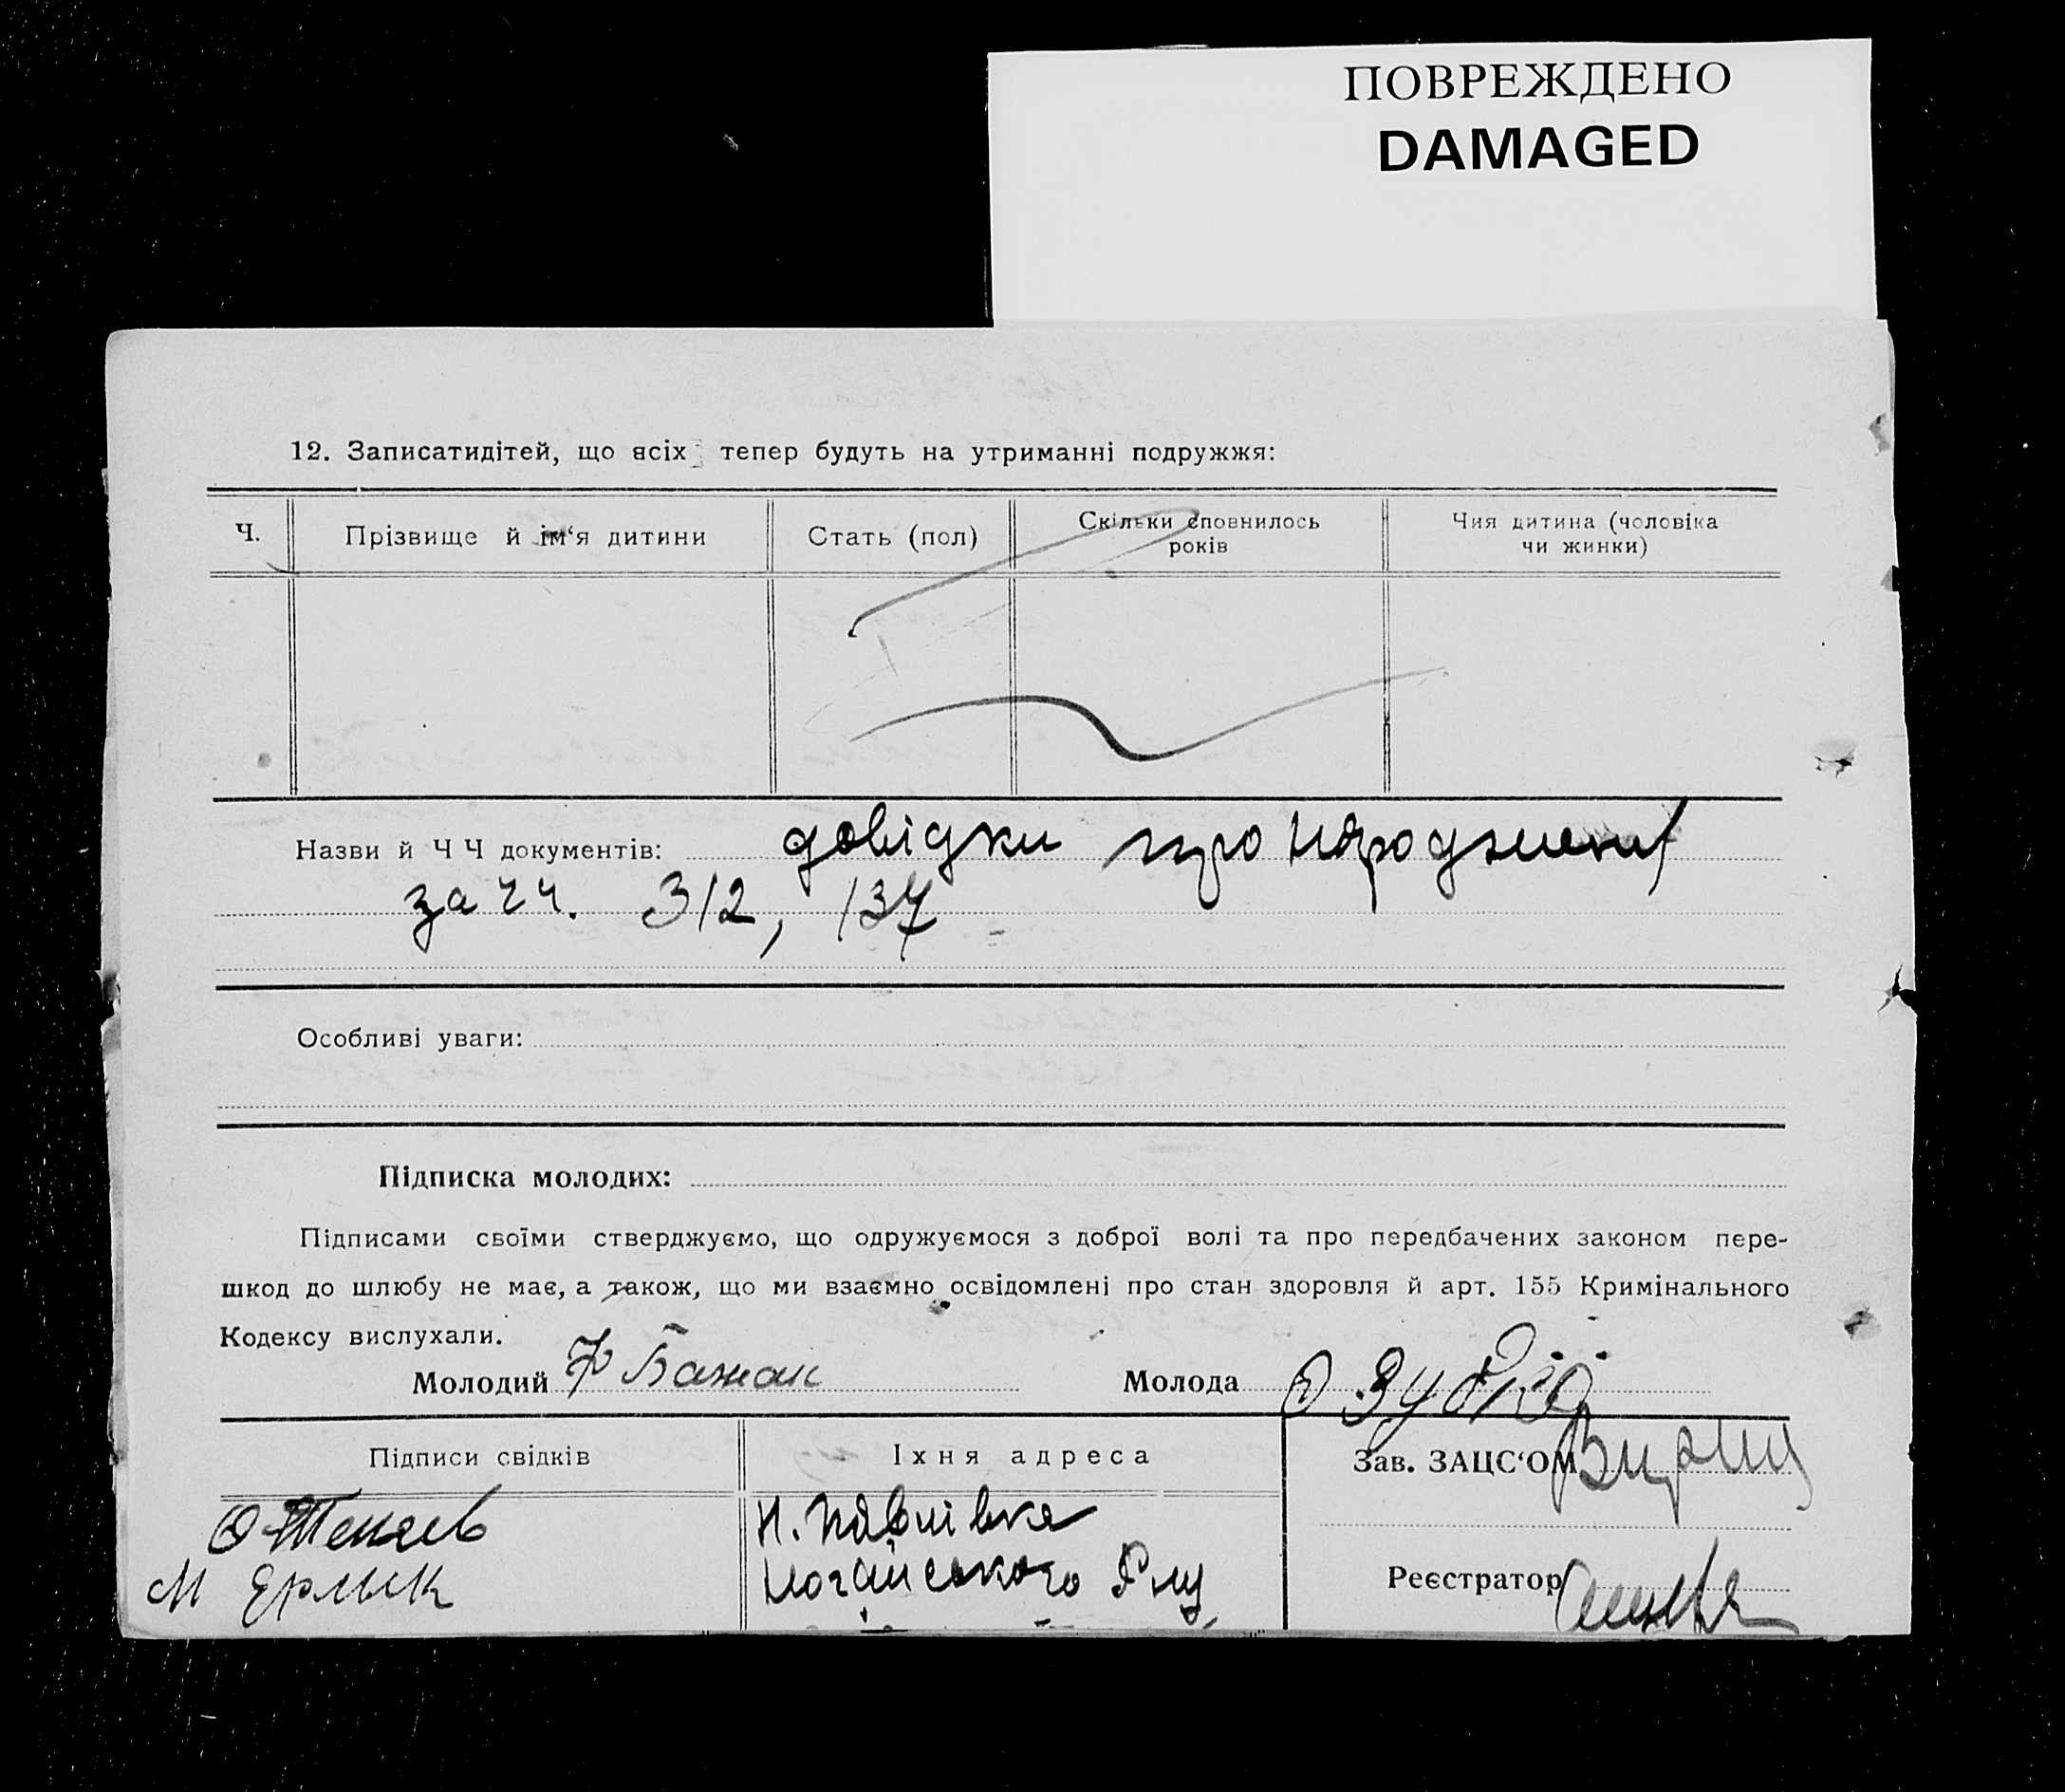 ПОВРЕЖДЕНО
DAMAGED
12. Записатидітей, що всіх тепер будуть на утриманні подружжя:
Ч. Прізвище й ім‘я дитини Стать (пол) Скільки сповнилось років Чия дитина (чоловіка чи жинки)
Назви й Ч Ч документів: довідки про народження
за чч. 312, 137
Особливі уваги:
Підписка молодих:
Підписами своїми стверджуємо, що одружуємося з доброї волі та про передбачених законом пере-
шкод до шлюбу не має, а також, що ми взаємно освідомлені про стан здоровля й арт. 155 Кримінального
Кодексу вислухали.
Молодий Бажан Молода
Підписи свідків Їхня адреса Зав. ЗАЦС‘ОМ
Н. Павлівка
М Ерлик Ногайського Р-ну
Реєстратор